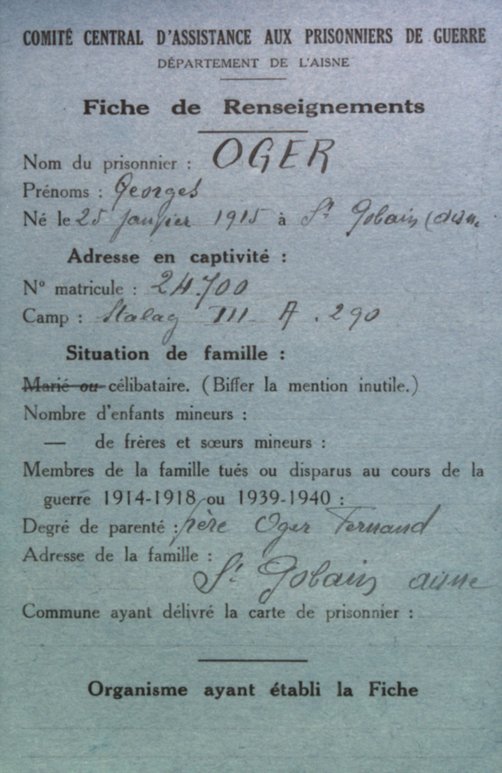 COMITÉ CENTRAL D'ASSISTANCE AUX PRISONNIERS DE GUERRE
DÉPARTEMENT DE L'AISNE
Fiche de Renseignements
Nom du prisonnier : OGER
Prénoms : Georges
Né le 25 janvier 1915 à St Gobain (aisne
Adresse en captivité :
N° matricule : 24.700
Camp : Stalag III A . 290
Situation de famille :
Marié ou célibataire. (Biffer la mention inutile.)
Nombre d'enfants mineurs :
— de frères et sœurs mineurs :
Membres de la famille tués ou disparus au cours de la
guerre 1914-1918 ou 1939-1940 :
Degré de parenté : père Oger Fernand
Adresse de la famille :
St Gobain aisne
Commune ayant délivré la carte de prisonnier :
Organisme ayant établi la Fiche